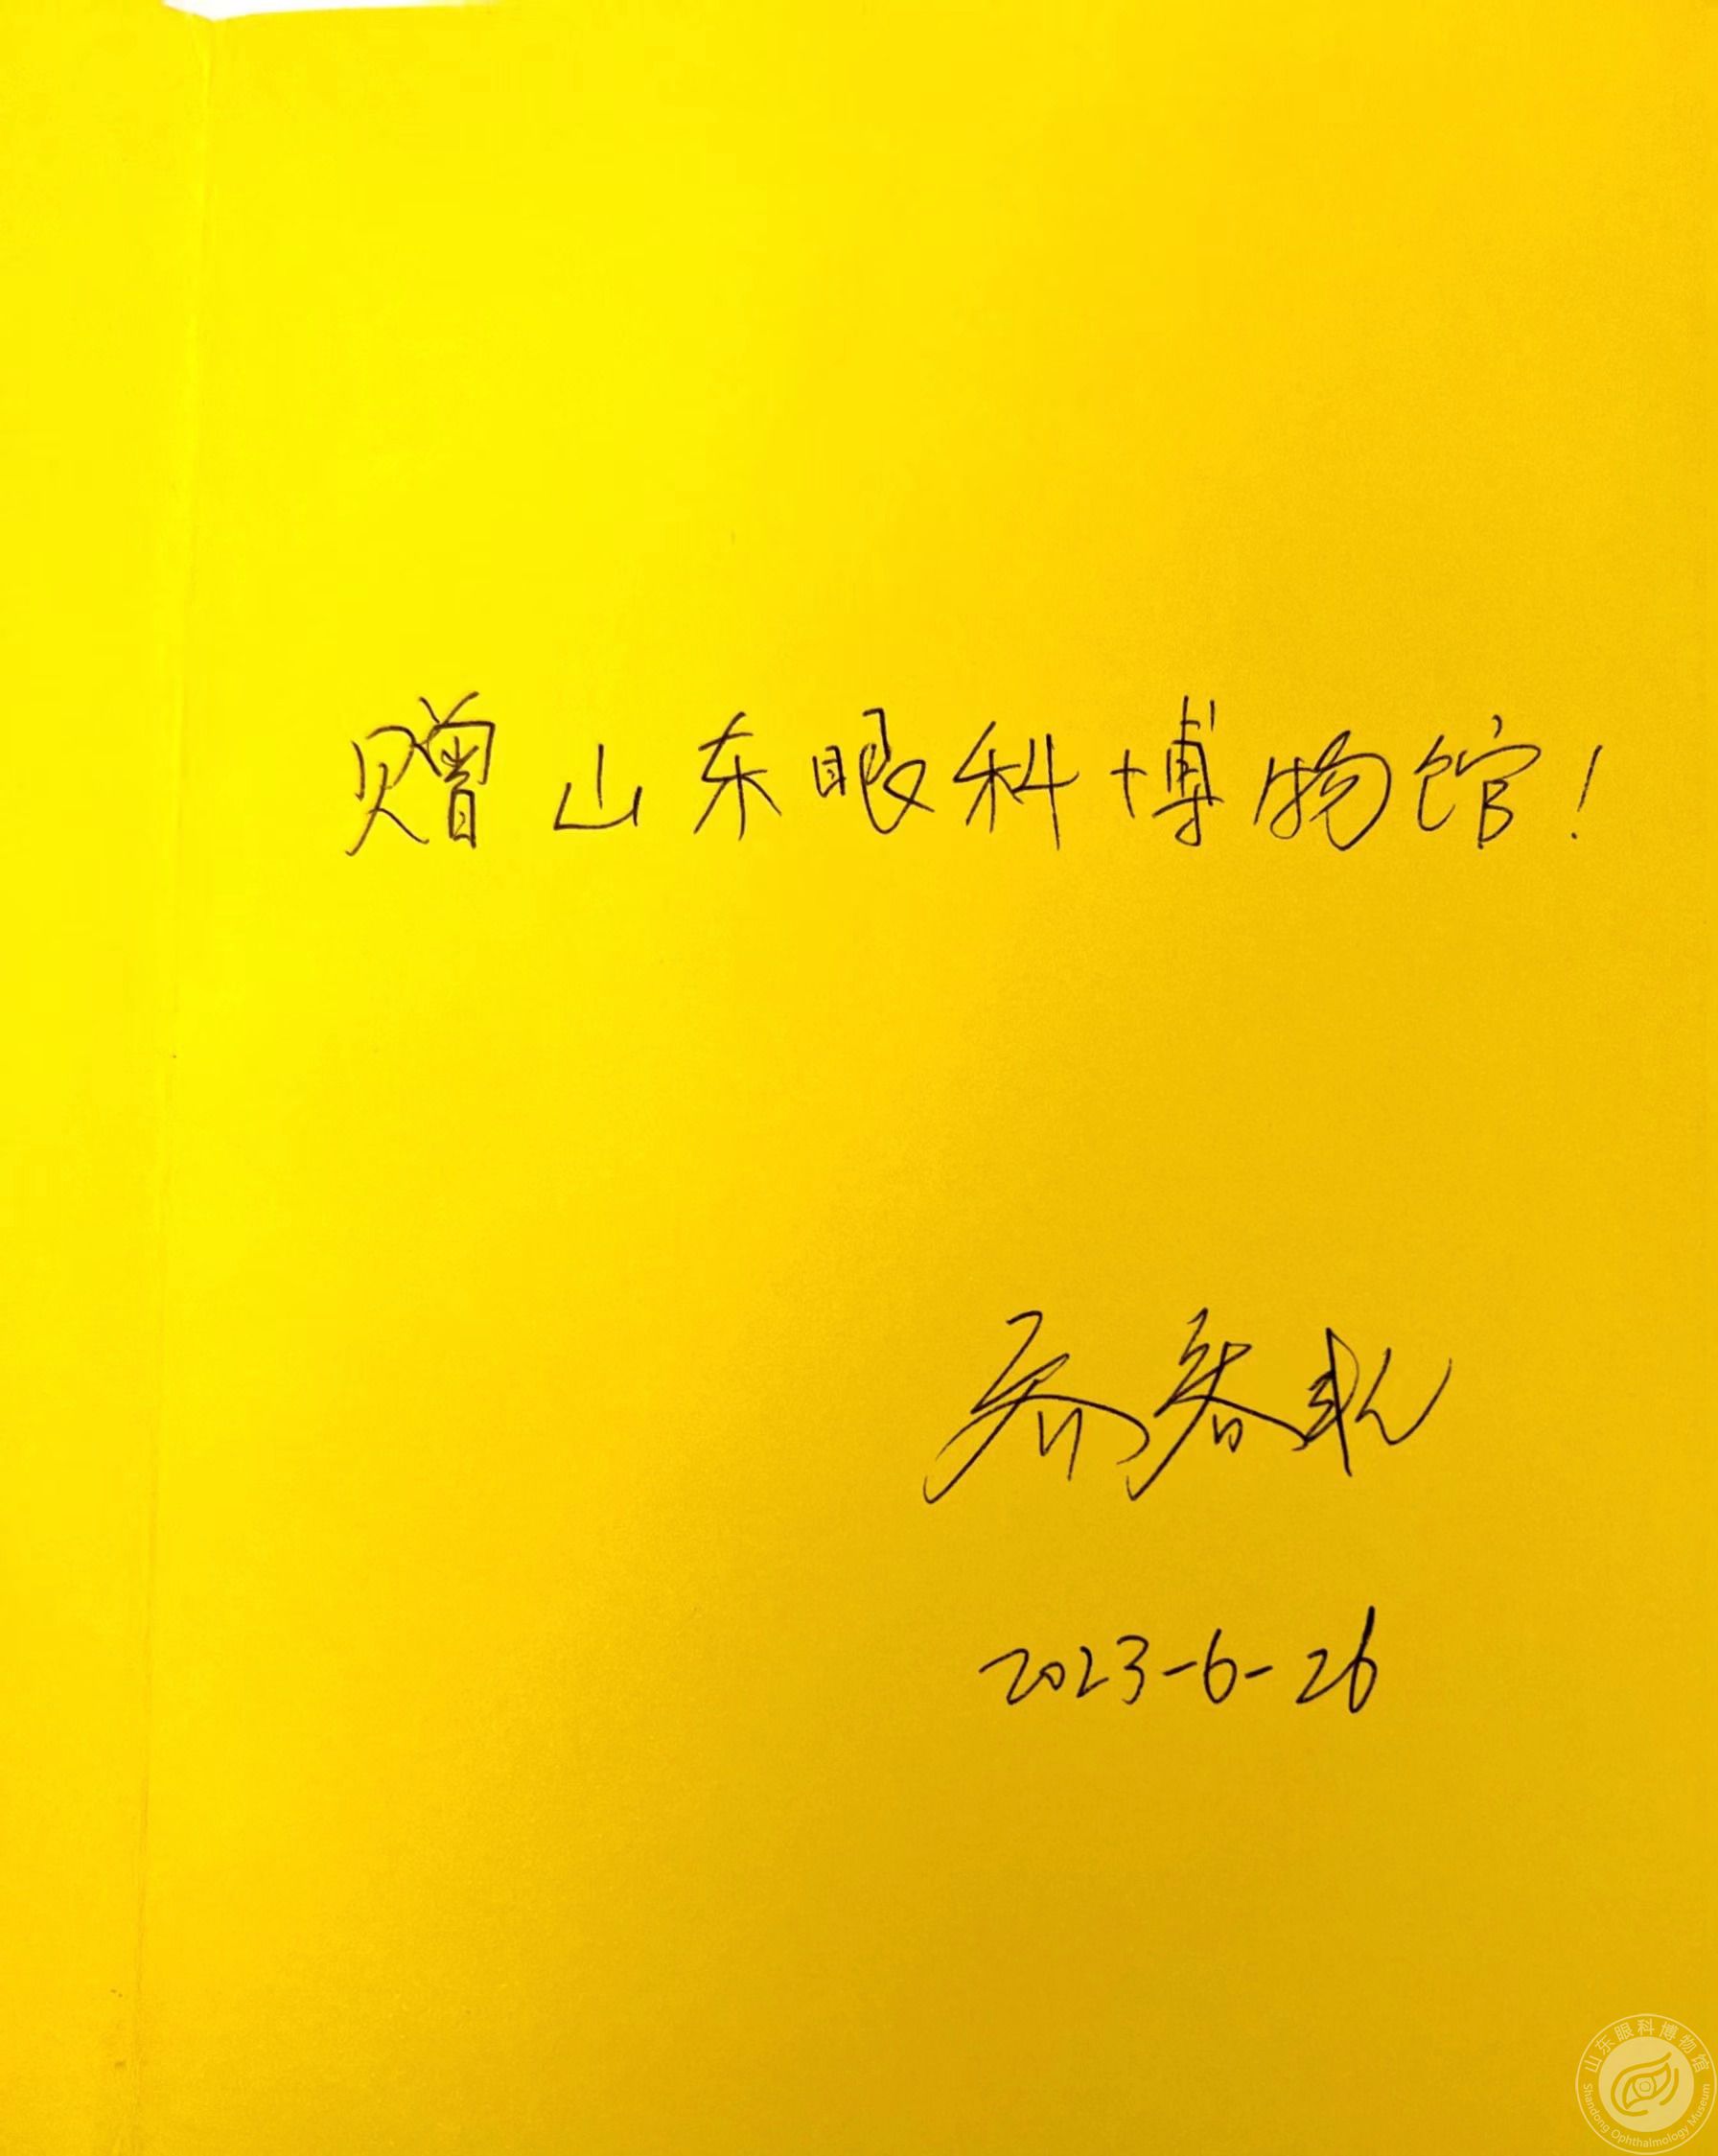 赠山东眼科博物馆!
2023-6-26
山东眼科博物馆
Shandong Ophthalmology Museum